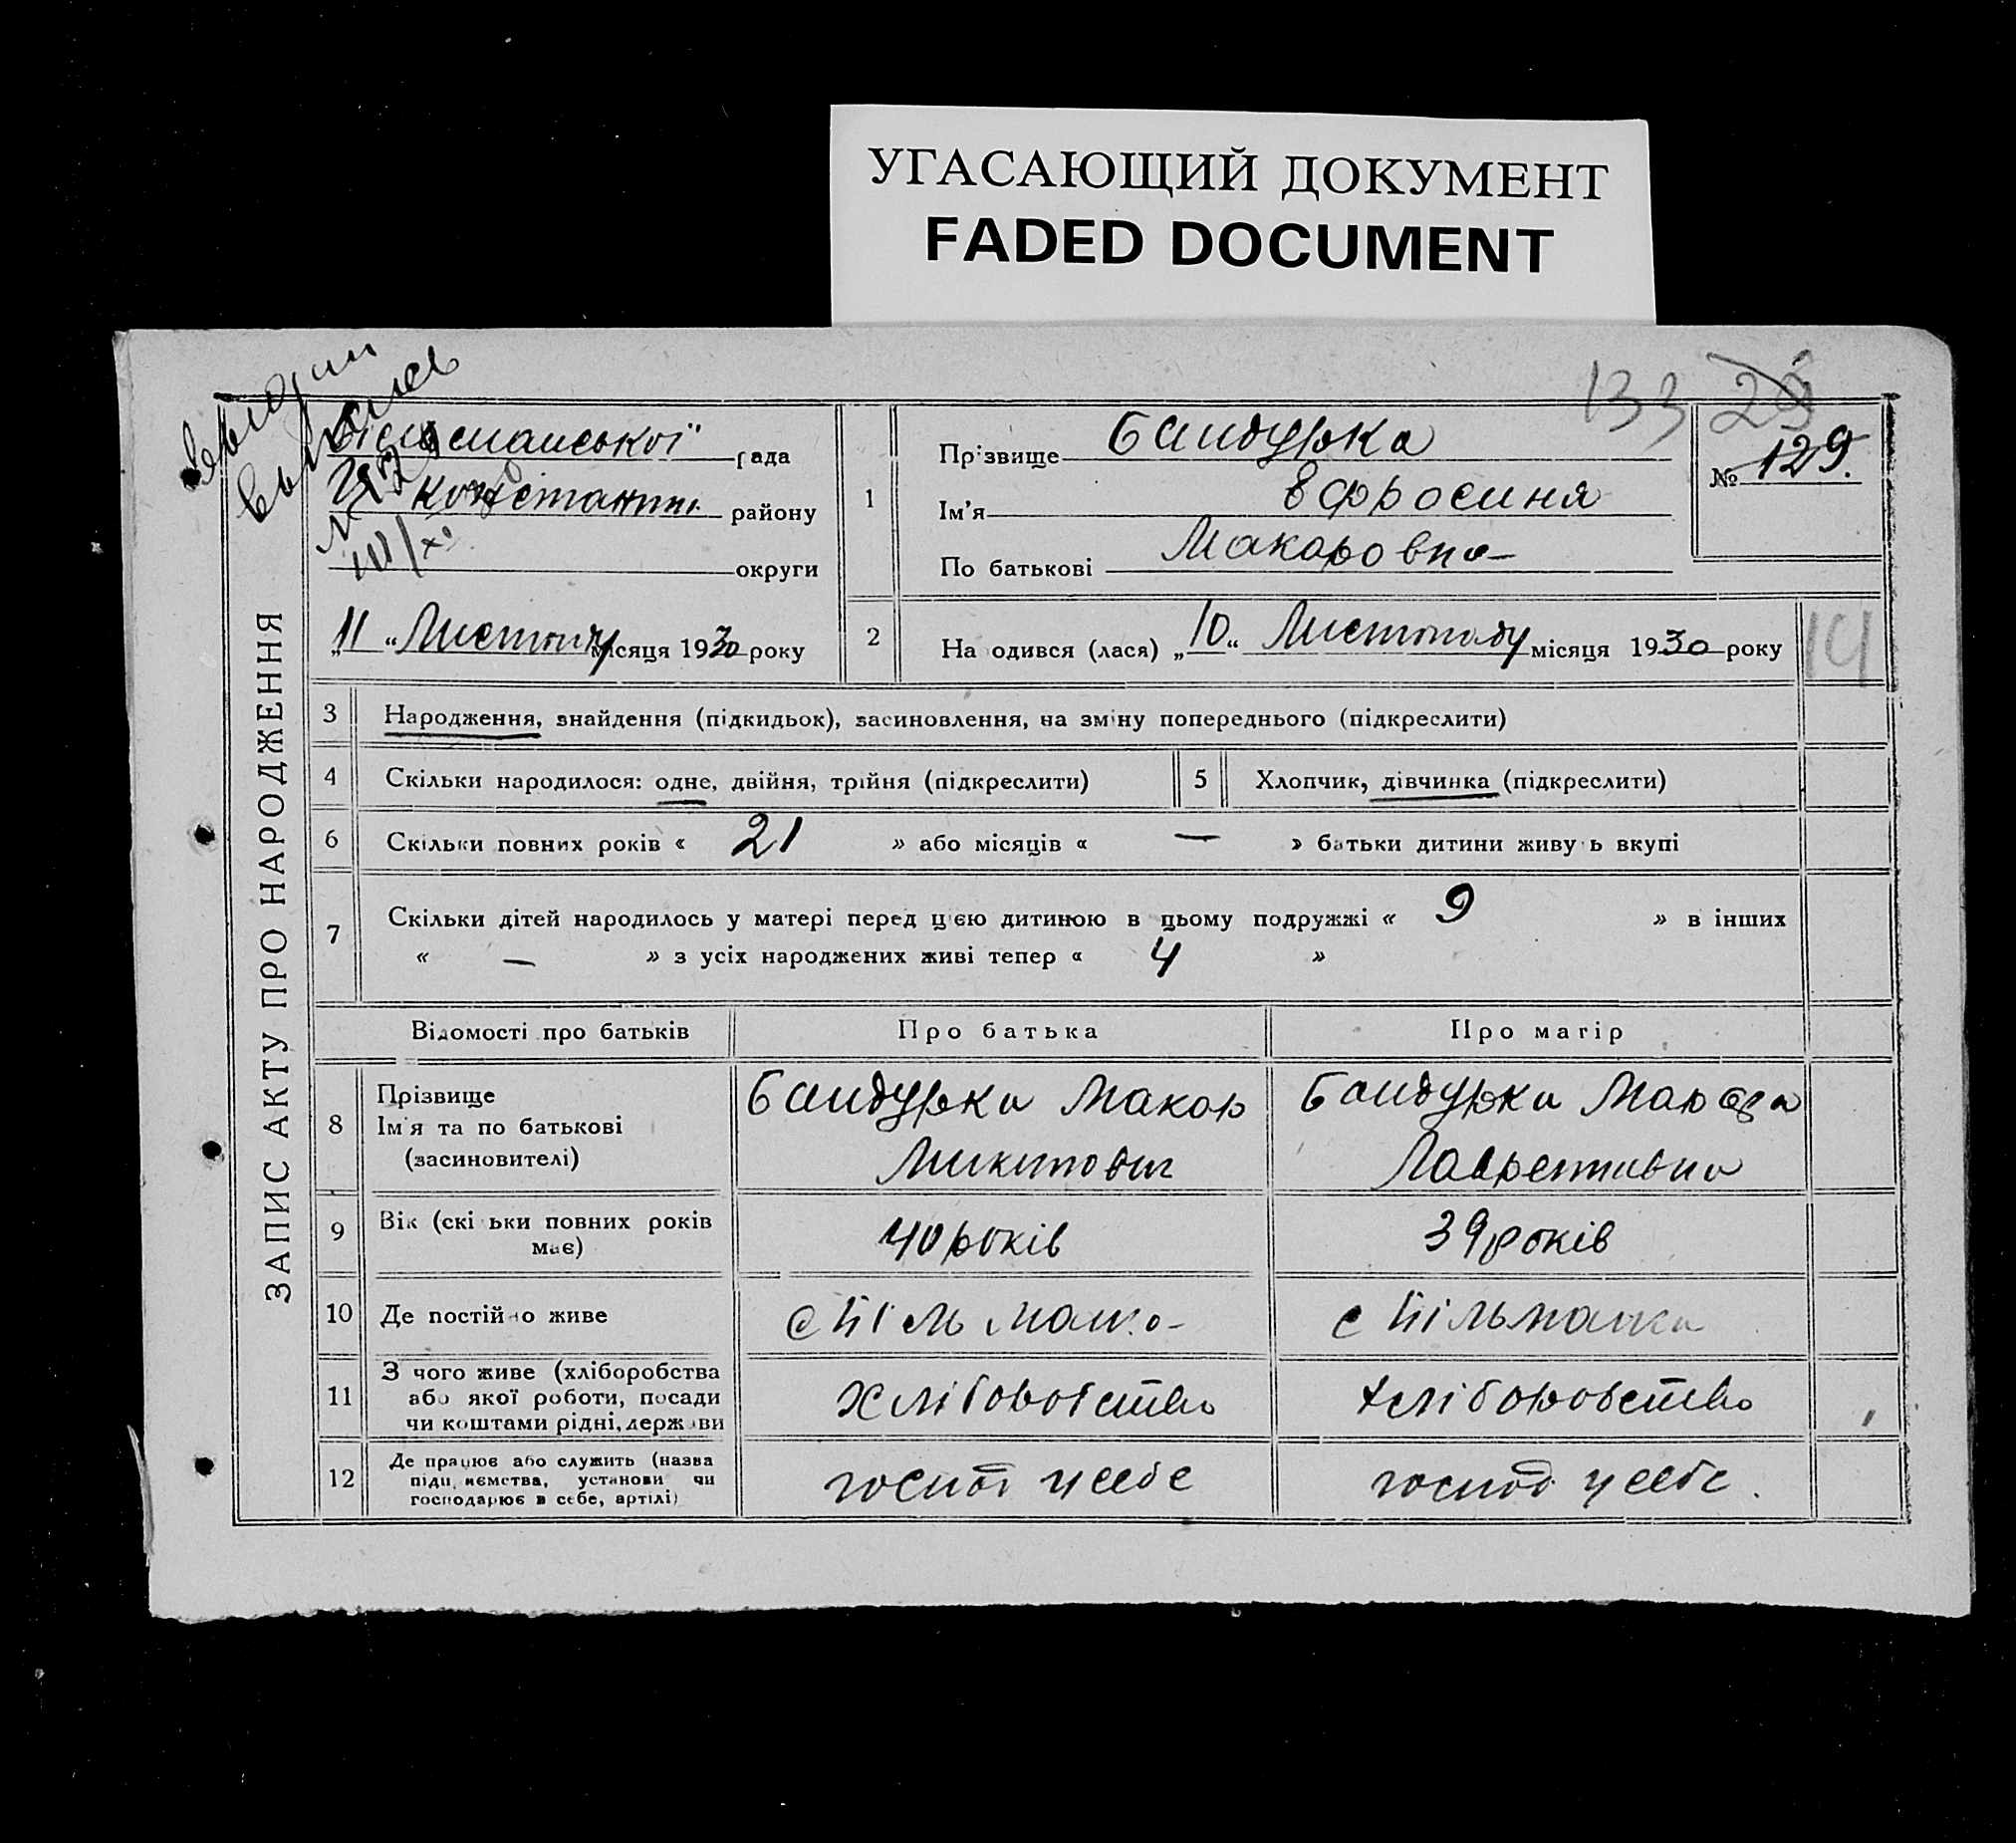 УГАСАЮЩИЙ ДОКУМЕНТ
FADED DOCUMENT
133 29
ЗАПИС АКТУ ПРО НАРОДЖЕННЯ
рада
району
округи
„11“ Листопаду місяця 1930 року
1 Прізвище Бандурка
Ім'я Єфросиня
По батькові Макаровна
№ 129.
2 На одився (лася) „10“ Листопаду місяця 1930 року
14
3 Народження, знайдення (підкидьок), засиновлення, на зміну попереднього (підкреслити)
4 Скільки народилося: одне, двійня, трійня (підкреслити)
5 Хлопчик, дівчинка (підкреслити)
6 Скільки повних років « 21 » або місяців « — » батьки дитини живу ь вкупі
7 Скільки дітей народилось у матері перед цією дитиною в цьому подружжі « 9 » в інших
« — » з усіх народжених живі тепер « 4 »
Відомості про батьків
Про батька
Про матір
8 Прізвище
Ім'я та по батькові
(засиновителі)
Бандурка Макар
Микитович
Бандурка
Лаврентивна
9 Вік (скі ьки повних років
має)
40 років
39 років
10 Де постійно живе
11 З чого живе (хліборобства
або якої роботи, посади
чи коштами рідні, держави
хліборобство
хліборобство
12 Де працює або служить (назва
підприємства, установи чи
господарює в себе, артілі)
господ у себе
господ у себе.